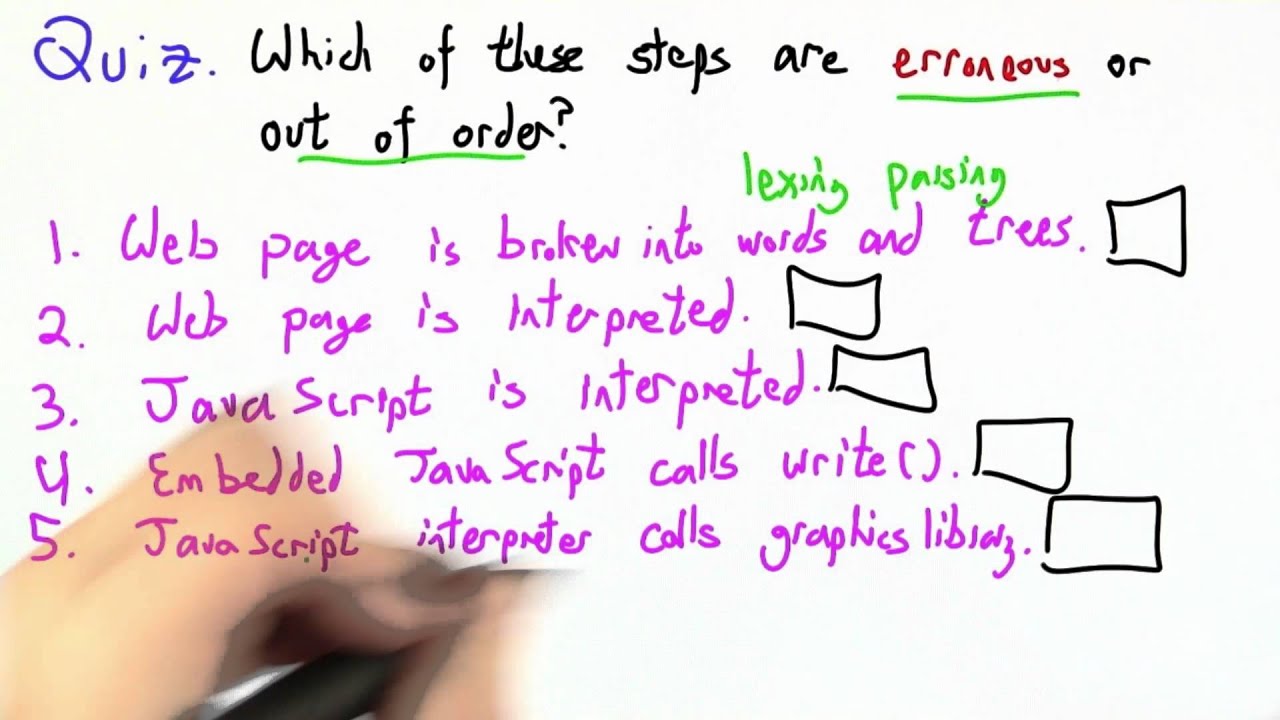 Quiz. Which of these steps are erroneous or
out of order?
lexing parsing
1. Web page is broken into words and trees.
2. Web page is interpreted.
3. JavaScript is interpreted.
4. Embedded JavaScript calls write().
5. JavaScript interpreter calls graphics library.